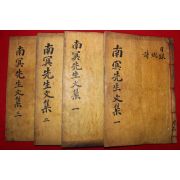 南冥先生文集 一
南冥先生文集 一
南冥先生文集 二
南冥先生文集 三